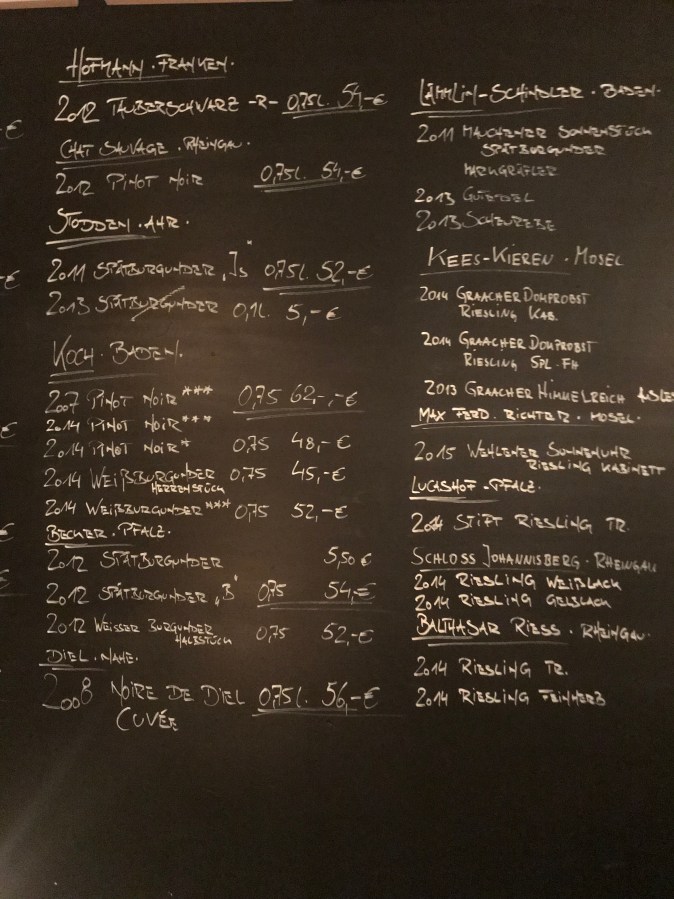 HOFMANN · FRANKEN ·
2012 TAUBERSCHWARZ -R- 0,75l. 54,-€
CHAT SAUVAGE · RHEINGAU ·
2012 PINOT NOIR 0,75l. 54,-€
STODDEN · AHR ·
2011 SPÄTBURGUNDER „Js" 0,75l. 52,-€
2013 SPÄTBURGUNDER 0,1l. 5,-€
KOCH · BADEN ·
2007 PINOT NOIR *** 0,75 62,-,-€
2014 PINOT NOIR ***
2014 PINOT NOIR * 0,75 48,-€
2014 WEIßBURGUNDER 0,75 45,-€
HERRENSTÜCK
2014 WEIßBURGUNDER *** 0,75 52,-€
BECKER · PFALZ ·
2012 SPÄTBURGUNDER 5,50 €
2012 SPÄTBURGUNDER „B" 0,75 54,-€
2012 WEISSER BURGUNDER 0,75 52,-€
KALBSTÜCK
DIEL · NAHE ·
2008 NOIRE DE DIEL 0,75l. 56,-€
CUVÉE
LÄMMLIN-SCHINDLER · BADEN ·
2011 MAUCHENER SONNENSTÜCK
SPÄTBURGUNDER
MARKGRÄFLER
2013 GUTEDEL
2013 SCHEUREBE
KEES-KIEREN · MOSEL
2014 GRAACHER DOMPROBST
RIESLING KAB.
2014 GRAACHER DOMPROBST
RIESLING SPL. FH
2013 GRAACHER HIMMELREICH AUSLES
MAX FERD. RICHTER · MOSEL ·
2015 WEHLENER SONNENUHR
RIESLING KABINETT
LUCASHOF · PFALZ ·
STIFT RIESLING TR.
SCHLOSS JOHANNISBERG · RHEINGAU
2014 RIESLING WEIßLACK
2014 RIESLING GELBLACK
BALTHASAR RIESS · RHEINGAU ·
2014 RIESLING TR.
2014 RIESLING FEINHERB